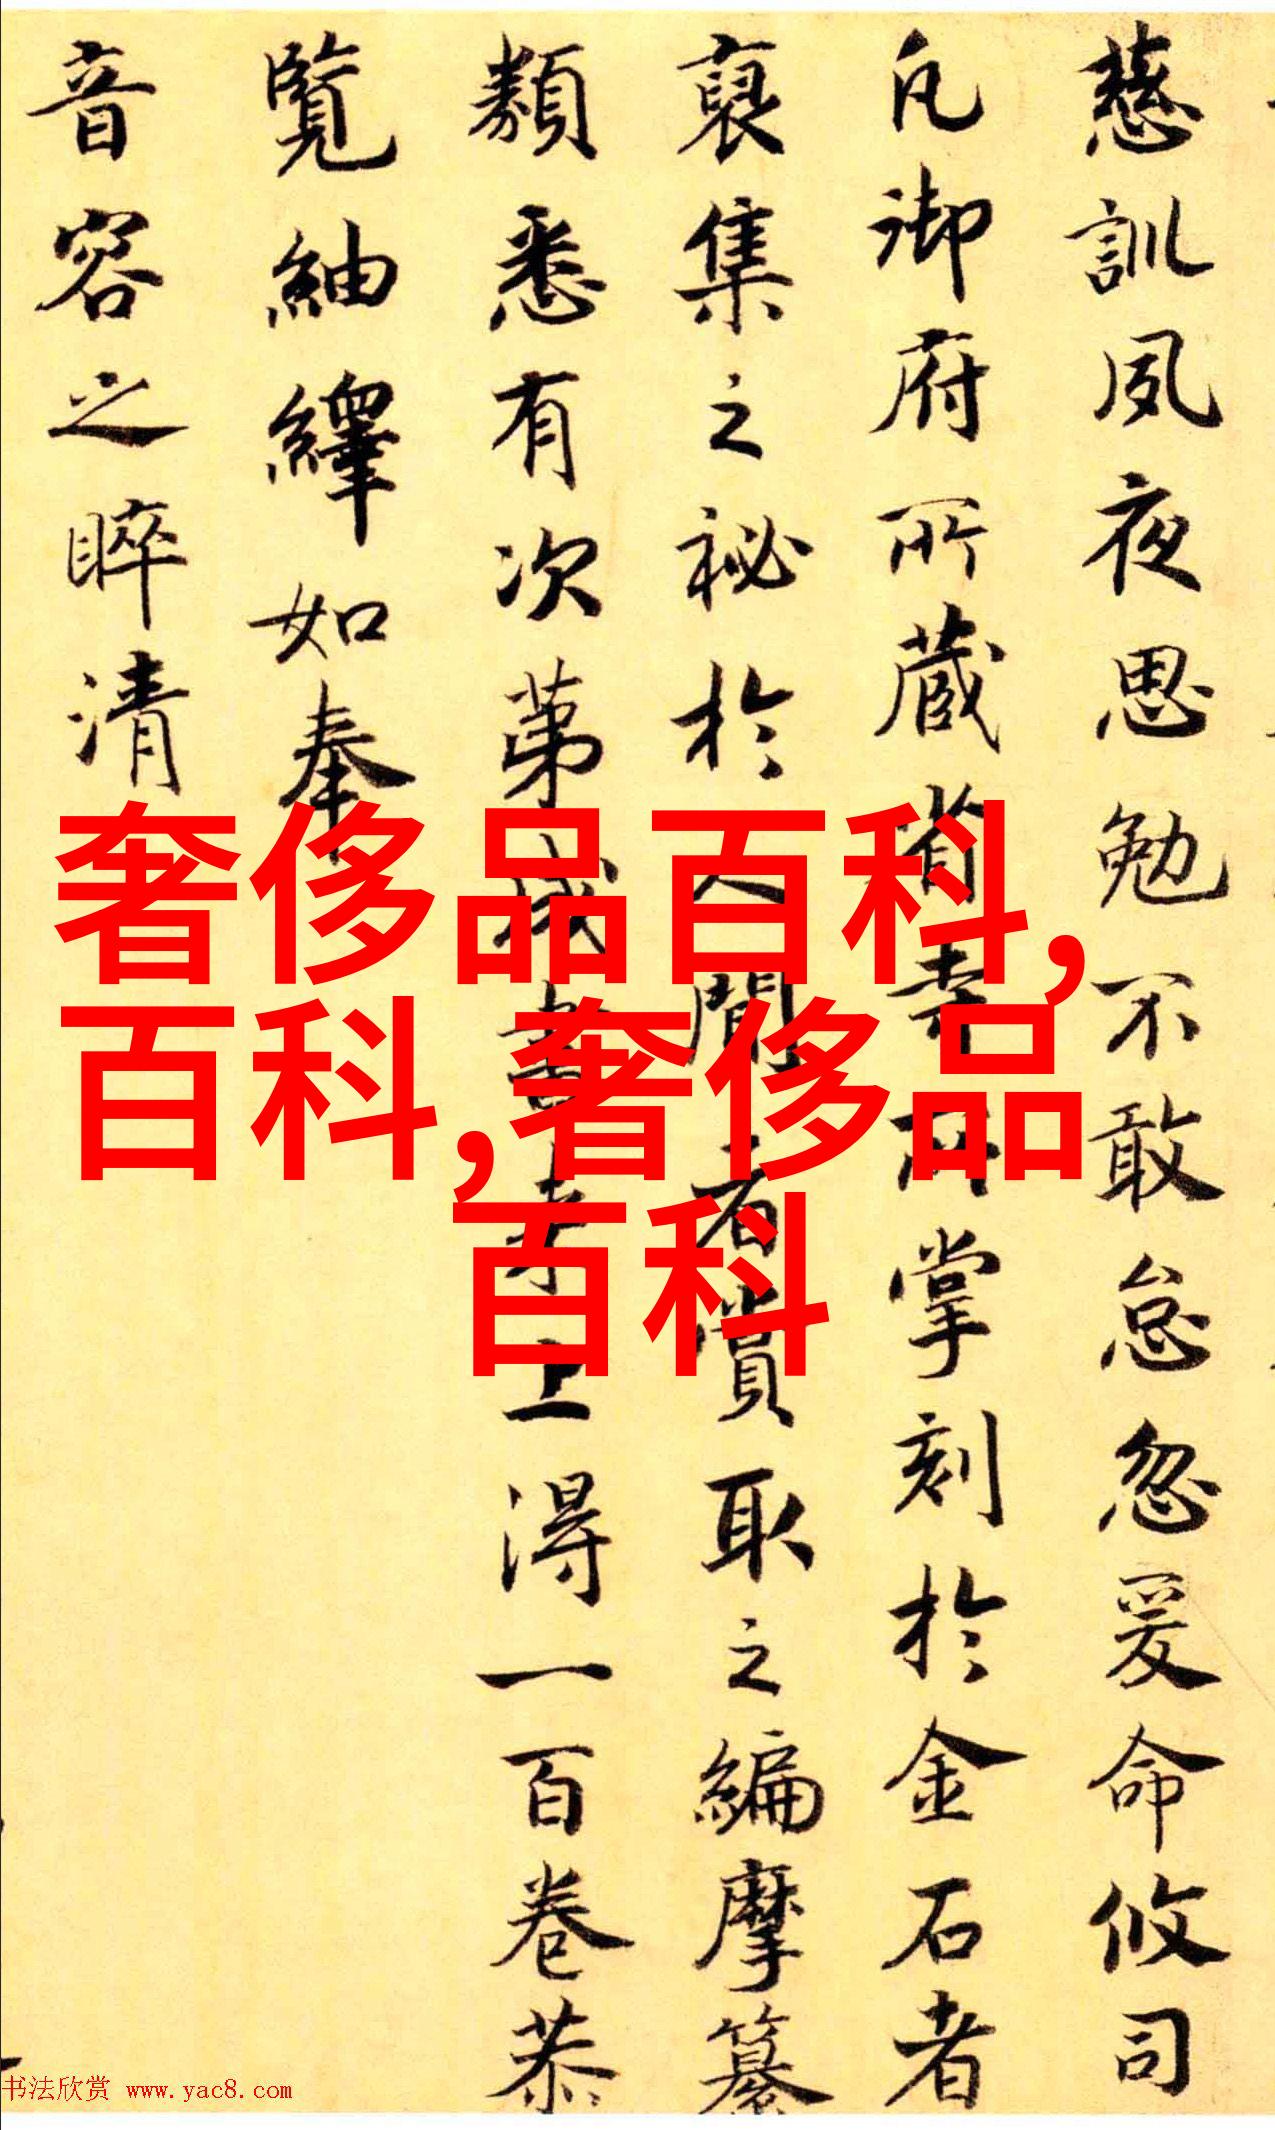 慈訓夙夜思勉不敢怠忽爰命攸司
凡御府所藏省寺所掌刻於金石者
裒集之祕於人間者賞取之編摩纂
類悉有次第成書来上得一百卷恭
覽紬繹如奉
音容之睟清
奢侈品百科,
百科,奢侈品
百科
书法欣赏 www.yac8.com